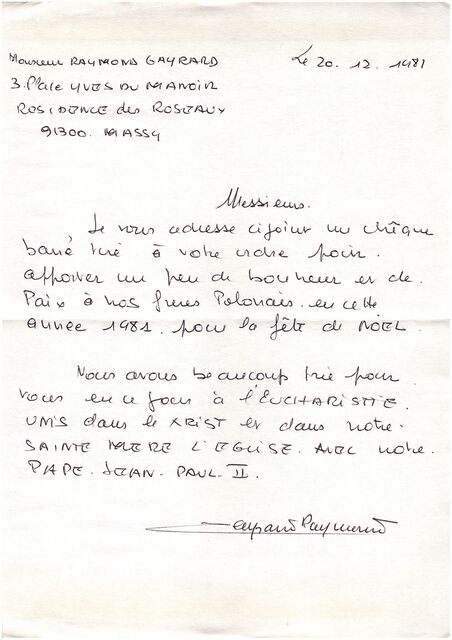 Monsieur RAYMOND GAYRARD
Le 20. 12. 1981
3. Place YVES DU MANOIR
ROSIDENCE des ROSEAUX
91300. MASSY
Messieurs.
Je vous adresse cijoint un chèque
barré tiré à votre ordre pour.
apporter un peu de bonheur et de.
Paix à nos freres Polonais. en cette
année 1981. pour la fête de NOEL.
Nous avons beaucoup prié pour.
vous en ce jour à l'EUCHARISTIE.
UNIS dans le XRIST et dans notre.
SAINTE MERE L'EGLISE. AVEC notre.
PAPE. JEAN. PAUL. II.
Gayrard Raymond